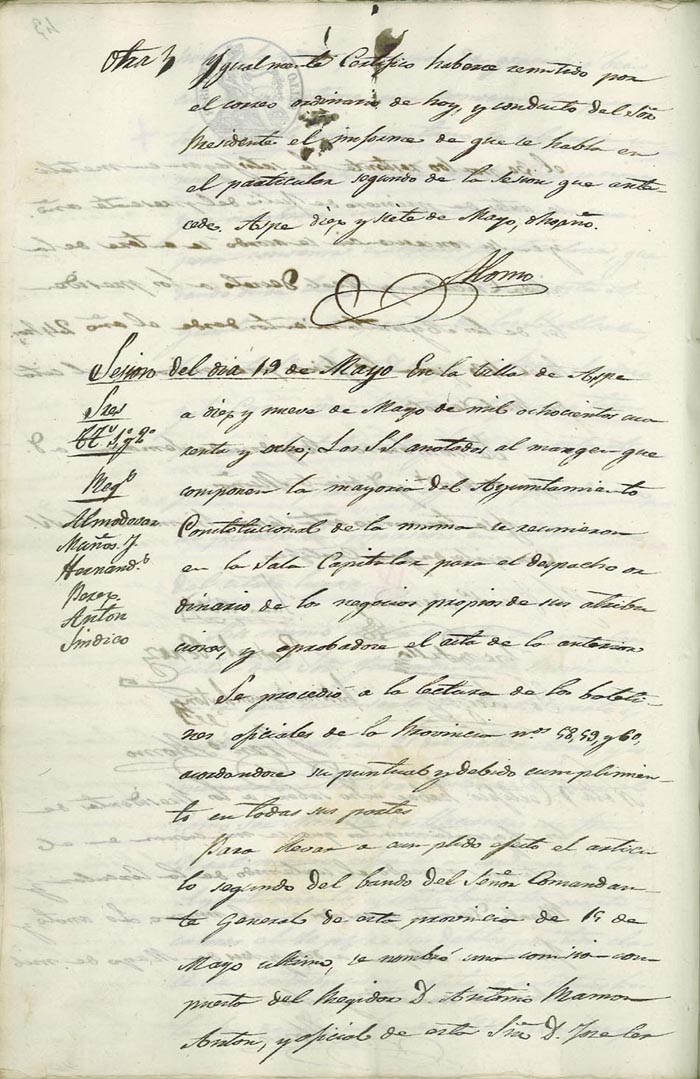 Otra } Ygualmente Certifico haberce remitido por
el correo ordinario de hoy, y conducto del Señr
Presidente el informe de que se habla en
el particular segundo de la Sesion que ante-
cede. Aspe diez y siete de Mayo, dho año.
Romo
Sesion del dia 19 de Mayo En la Villa de Aspe
Sres
a diez y nueve de Mayo de mil ochocientos cua
renta y ocho; Los S.S. anotados al margen que
Regs
componen la mayoria del Ayuntamiento
Almodovar
Constitucional de la misma se reunieron
Maños. J.
en la Sala Capitular para el despacho or
Hernandz
Perez
dinario de los negocios propios de sus atribu
Anton
Sindico
ciones, y aprobadore el acta de la anterior
Se procedió a la lectura de los boleti-
nes oficiales de la Provincia nos 58, 59, y 60,
acordandore su puntual y debido cumplimien-
to en todas sus partes
Para llevar a cumplido efecto el articu
lo segundo del bando del Señor Comandan-
te General de esta provincia de 15 de
Mayo ultimo, se nombró una comision com-
puesta del Regidor D. Antonio Ramon
Anton, y oficial de esta Sria D. Jose Cer